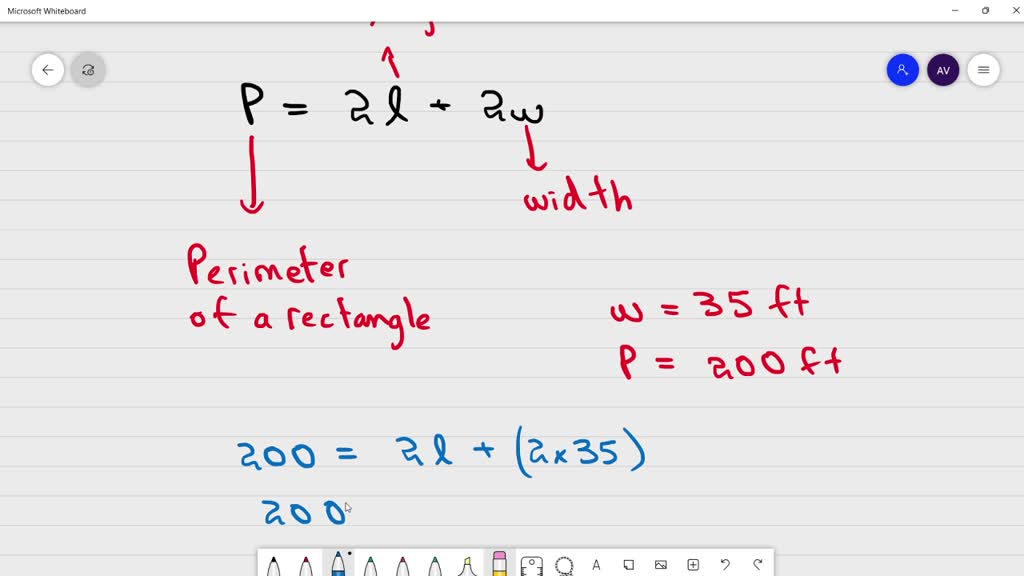 Microsoft Whiteboard
AV
P = 2l + 2w
width
Perimeter
of a rectangle
w = 35 ft
P = 200 ft
200 = 2l + (2x35)
200
A